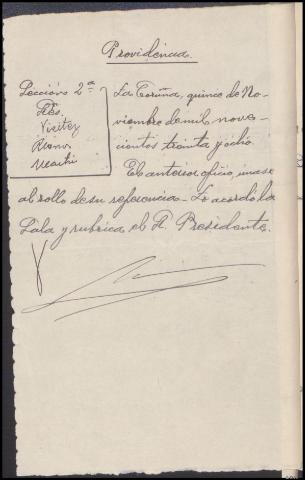 Providencia.
Sección 2ª
Sres
La Coruña, quince de No-
viembre de mil nove-
cientos treinta y ocho.
El anterior oficio, unase
al rollo de su referencia. Lo acordó la
Sala y rubrica el Sr. Presidente.